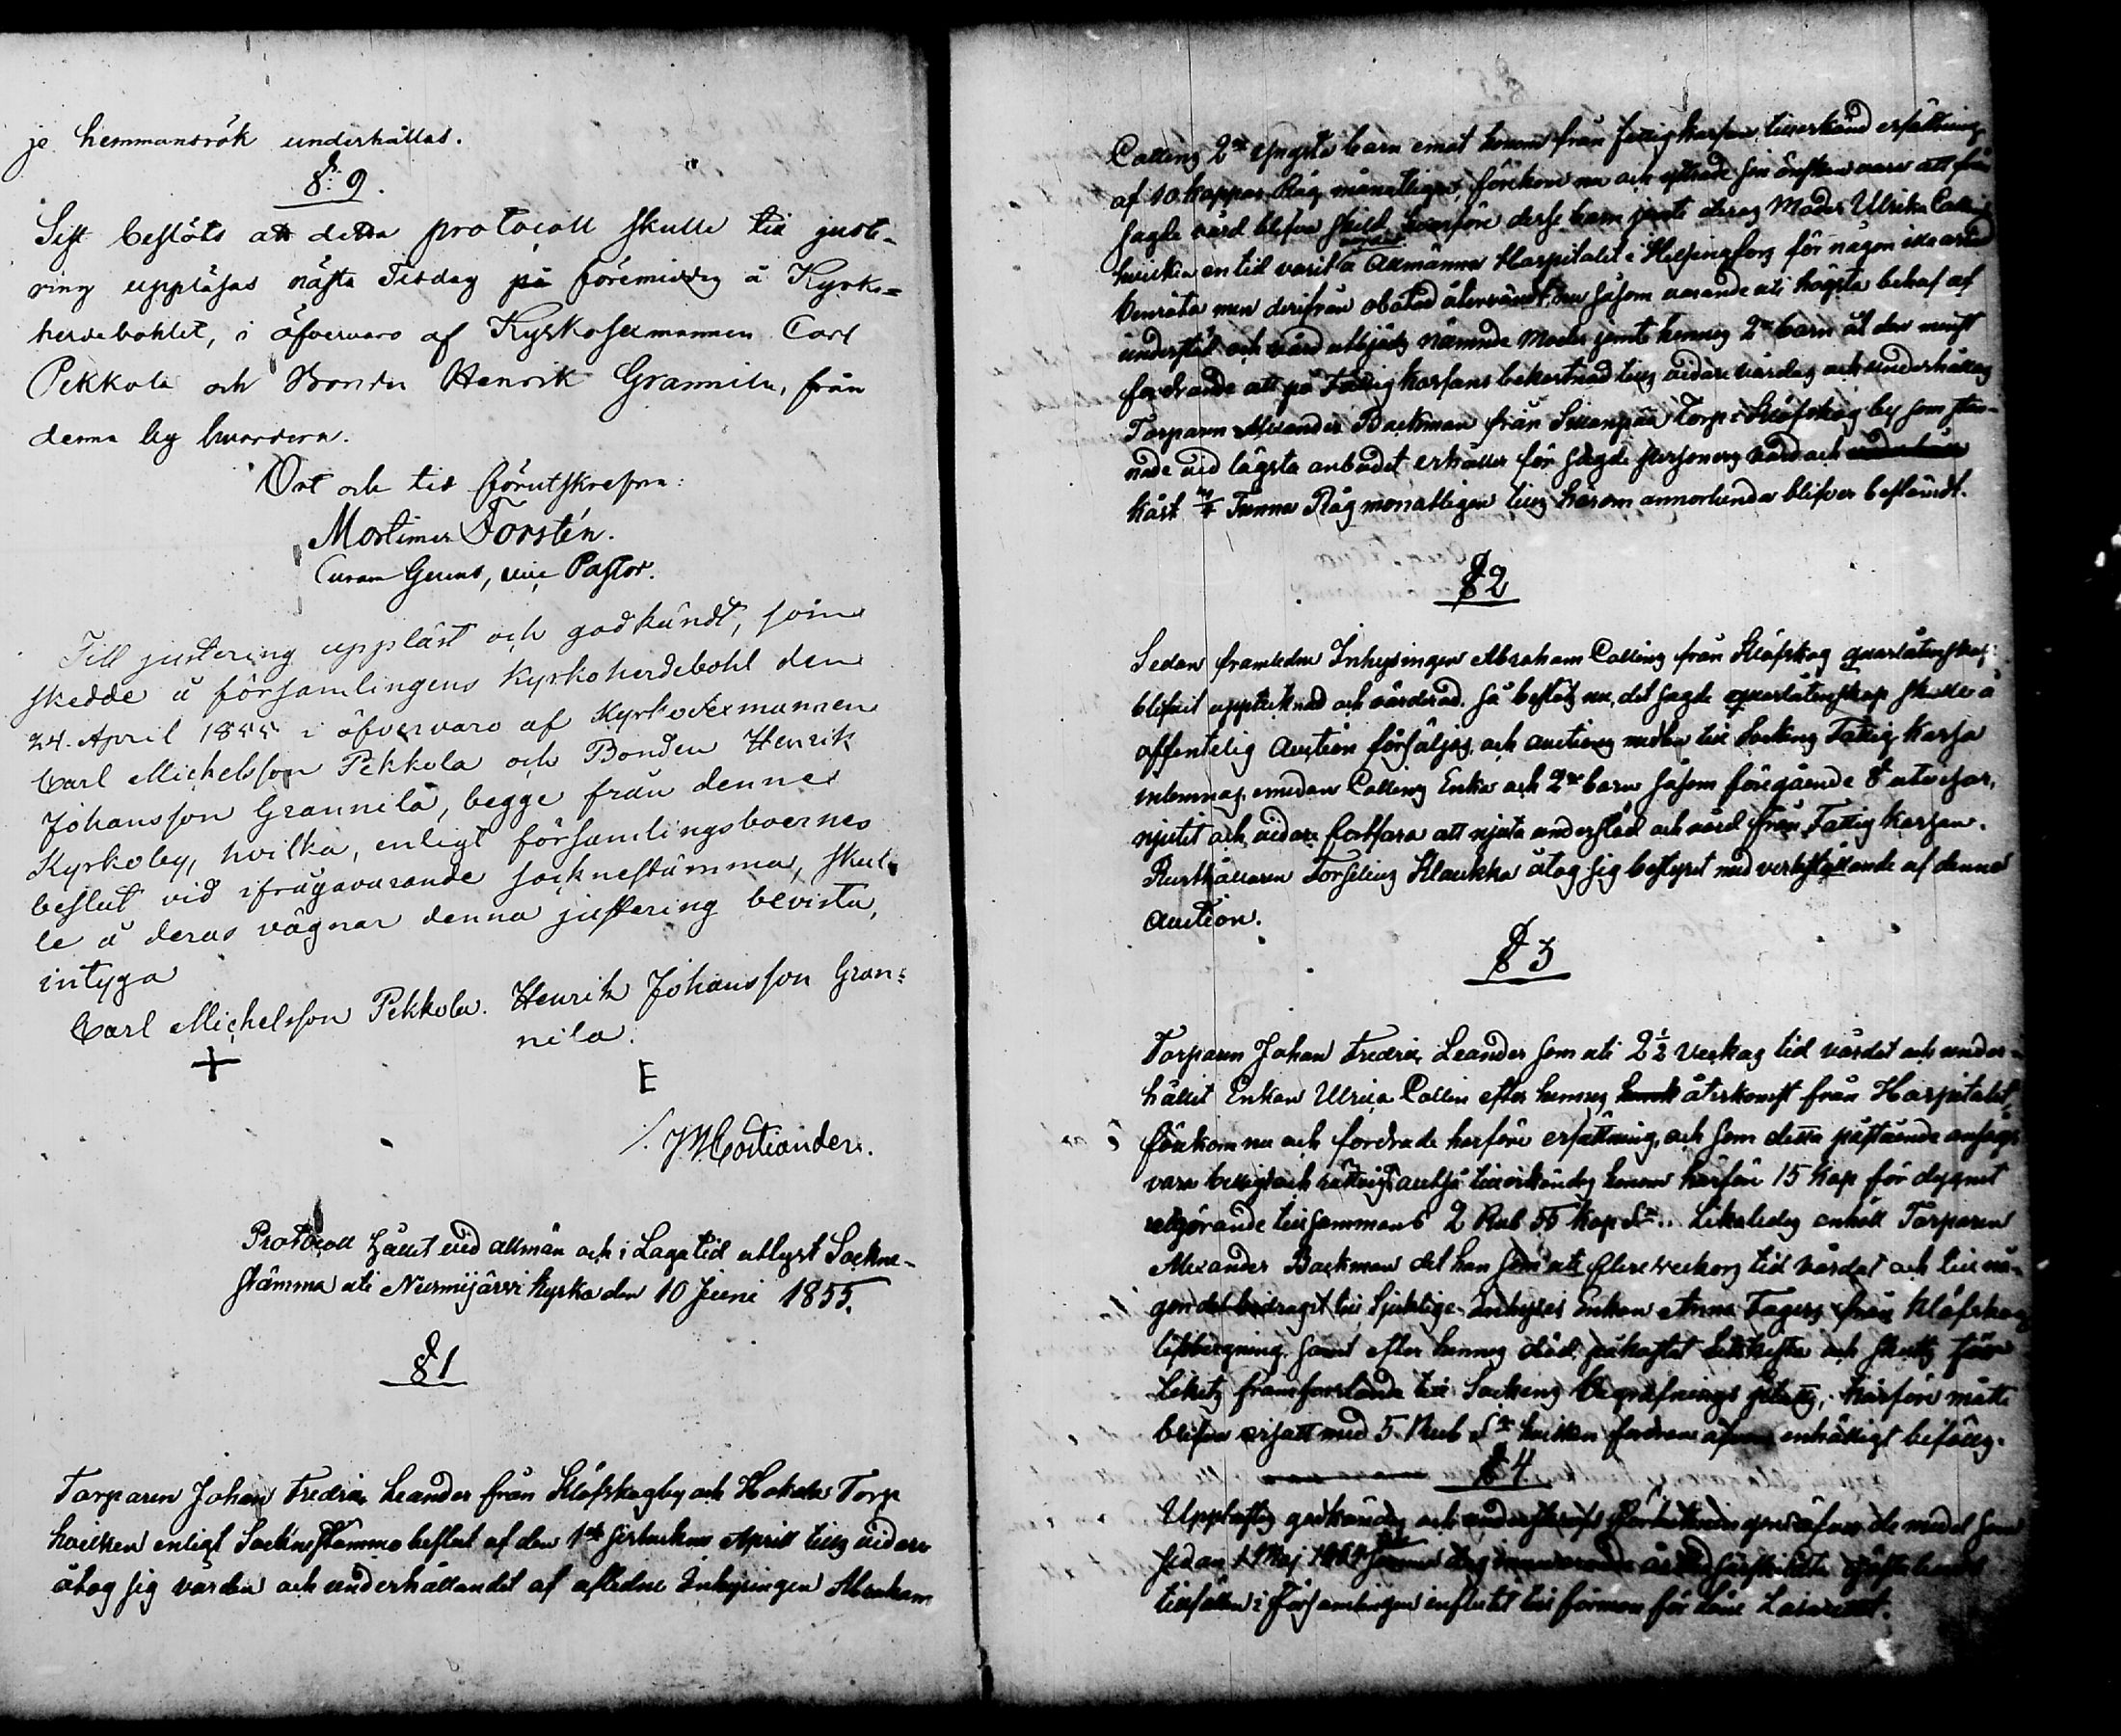 je hemmansrök underhållas.
§ 9.
Sist beslöts att detta protocoll skulle till juste-
ring uppläsas nästa Tisdag på förmiddag å Kyrko=
herdebohlet, i öfvervaro af Kyrkosexmannen Carl
Pekkola och Bonden Henrik Grannila, från
denna by hvardera.
Ort och tid förutskrefne:
Mortimer Forstén.
Curam Gerens, vice Pastor.
Till justering uppläst och godkändt, som
skedde å församlingens Kyrkoherdebohl den
24. April 1855 i öfvervaro af Kyrkosexmannen
Carl Michelsson Pekkola och Bonden Henrik
Johansson Grannila, begge från denne
Kyrkoby, hvilka, enligt församlingsboernes
beslut vid ifrågavarande sockneståmma, skul-
le å deras vägnar denna justering bevista,
intyga
Carl Michelsson Pekkola. Henrik Johansson Gran=
nila.
+ E
Protocoll hållet vid allmän och i Laga tid utlyst Sockne-
stämma uti Nurmijärvi kyrka den 10 Juni 1855.
§ 1
Torparen Johan Fredric Leander från Klöfskog by och Hakala Torp
hvilken enligt Socknestämmo beslut af den 1sta sistledne April tills vidare
åtog sig vården och underhållandet af afledne Inhysingen Abraham
Collins 2ne yngsta barn emot honom från fattig kassan tillerkänd ersättning
af 10 kappar Råg månatligen, förekom nu och yttrade sin önskan vara att från
sagde vård blifva skild hvarföre desse barn jemte deras Moder Ulrika Collin
hvilken en tid varit å Allmänna Hospitalet i Helsingfors för någon
men derifrån obotad återvändt, nu såsom varande uti högsta behof af
understöd och vård utbjöds nämnde Moder jemte hennes 2ne barn åt den minst
fordrande att på Fattig kassans bekostnad tills vidare vårdas och underhållas
Torparen Alexander Backman från Torp i Klöfskog by som stan-
nade vid lägsta anbudet erhåller för sagde personers vård och
kost Tunna Råg monatligen tills härom annorlunda blifver bestämdt.
§ 2
Sedan framledne Inhysingen Abraham Collins från Klöfskog qvarlåtenskap
blifvit upptecknad och värderad, så beslöts nu, det sagde qvarlåtenskap skulle å
offentelig Auction försäljas och auctions medlen till Sockens Fattig Kassa
inlemnas, emedan Collins Enka och 2ne barn såsom föregående § utvisar,
njutit och vidare fortfara att njuta understöd och vård från Fattig Kassan.
Rusthållaren Forselius Klaukka åtog sig bestyret med verkställande af denna
Auction.
§ 3
Torparen Johan Fredric Leander som uti 2½ Veckas tid vårdat och under-
hållit Enkan Ulrica Collin efter hennes återkomst från Hospitalet,
förekom nu och fordrade härföre ersättning, och som detta påstående ansågs
vara billigt och rättvist, altså tillerkändes honom härföre 15 kop för dygnet
utgörande tillsammans 2 Rub 55 kop Sr. Likaledes anhöll Torparen
Alexander Backman det han som uti flere veckors tid vårdat och till nå-
gon del bidragit till Sjuklige Inhyses Enkan Anna Fagers från Klöfskog
lifbergning samt efter hennes död påkostat och skjuts för
Likets framforslande till Sockens Begrafnings plats, härföre måtte
blifva ersatt med 5 Rub Sr hvilken fordran enhälligt bifölls.
§ 4
Upplästes godkändes och öfver de medel som
sedan
tillfällen i Församlingen influtit till förmon för Läns Lazarettet.